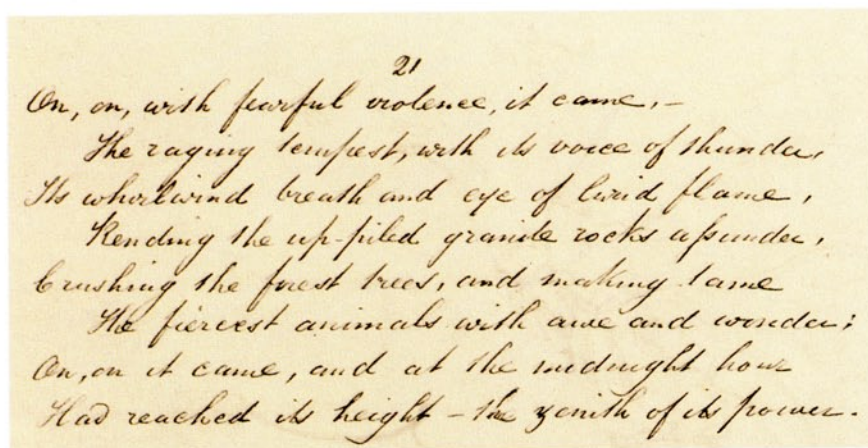 21
On, on, with fearful violence, it came, –
The raging tempest, with its voice of thunder,
Its whirlwind breath and eye of livid flame,
Rending the up-piled granite rocks aſsunder,
Crushing the forest trees, and making tame
The fiercest animals with awe and wonder;
On, on it came, and at the midnight hour
Had reached its height – the zenith of its power.